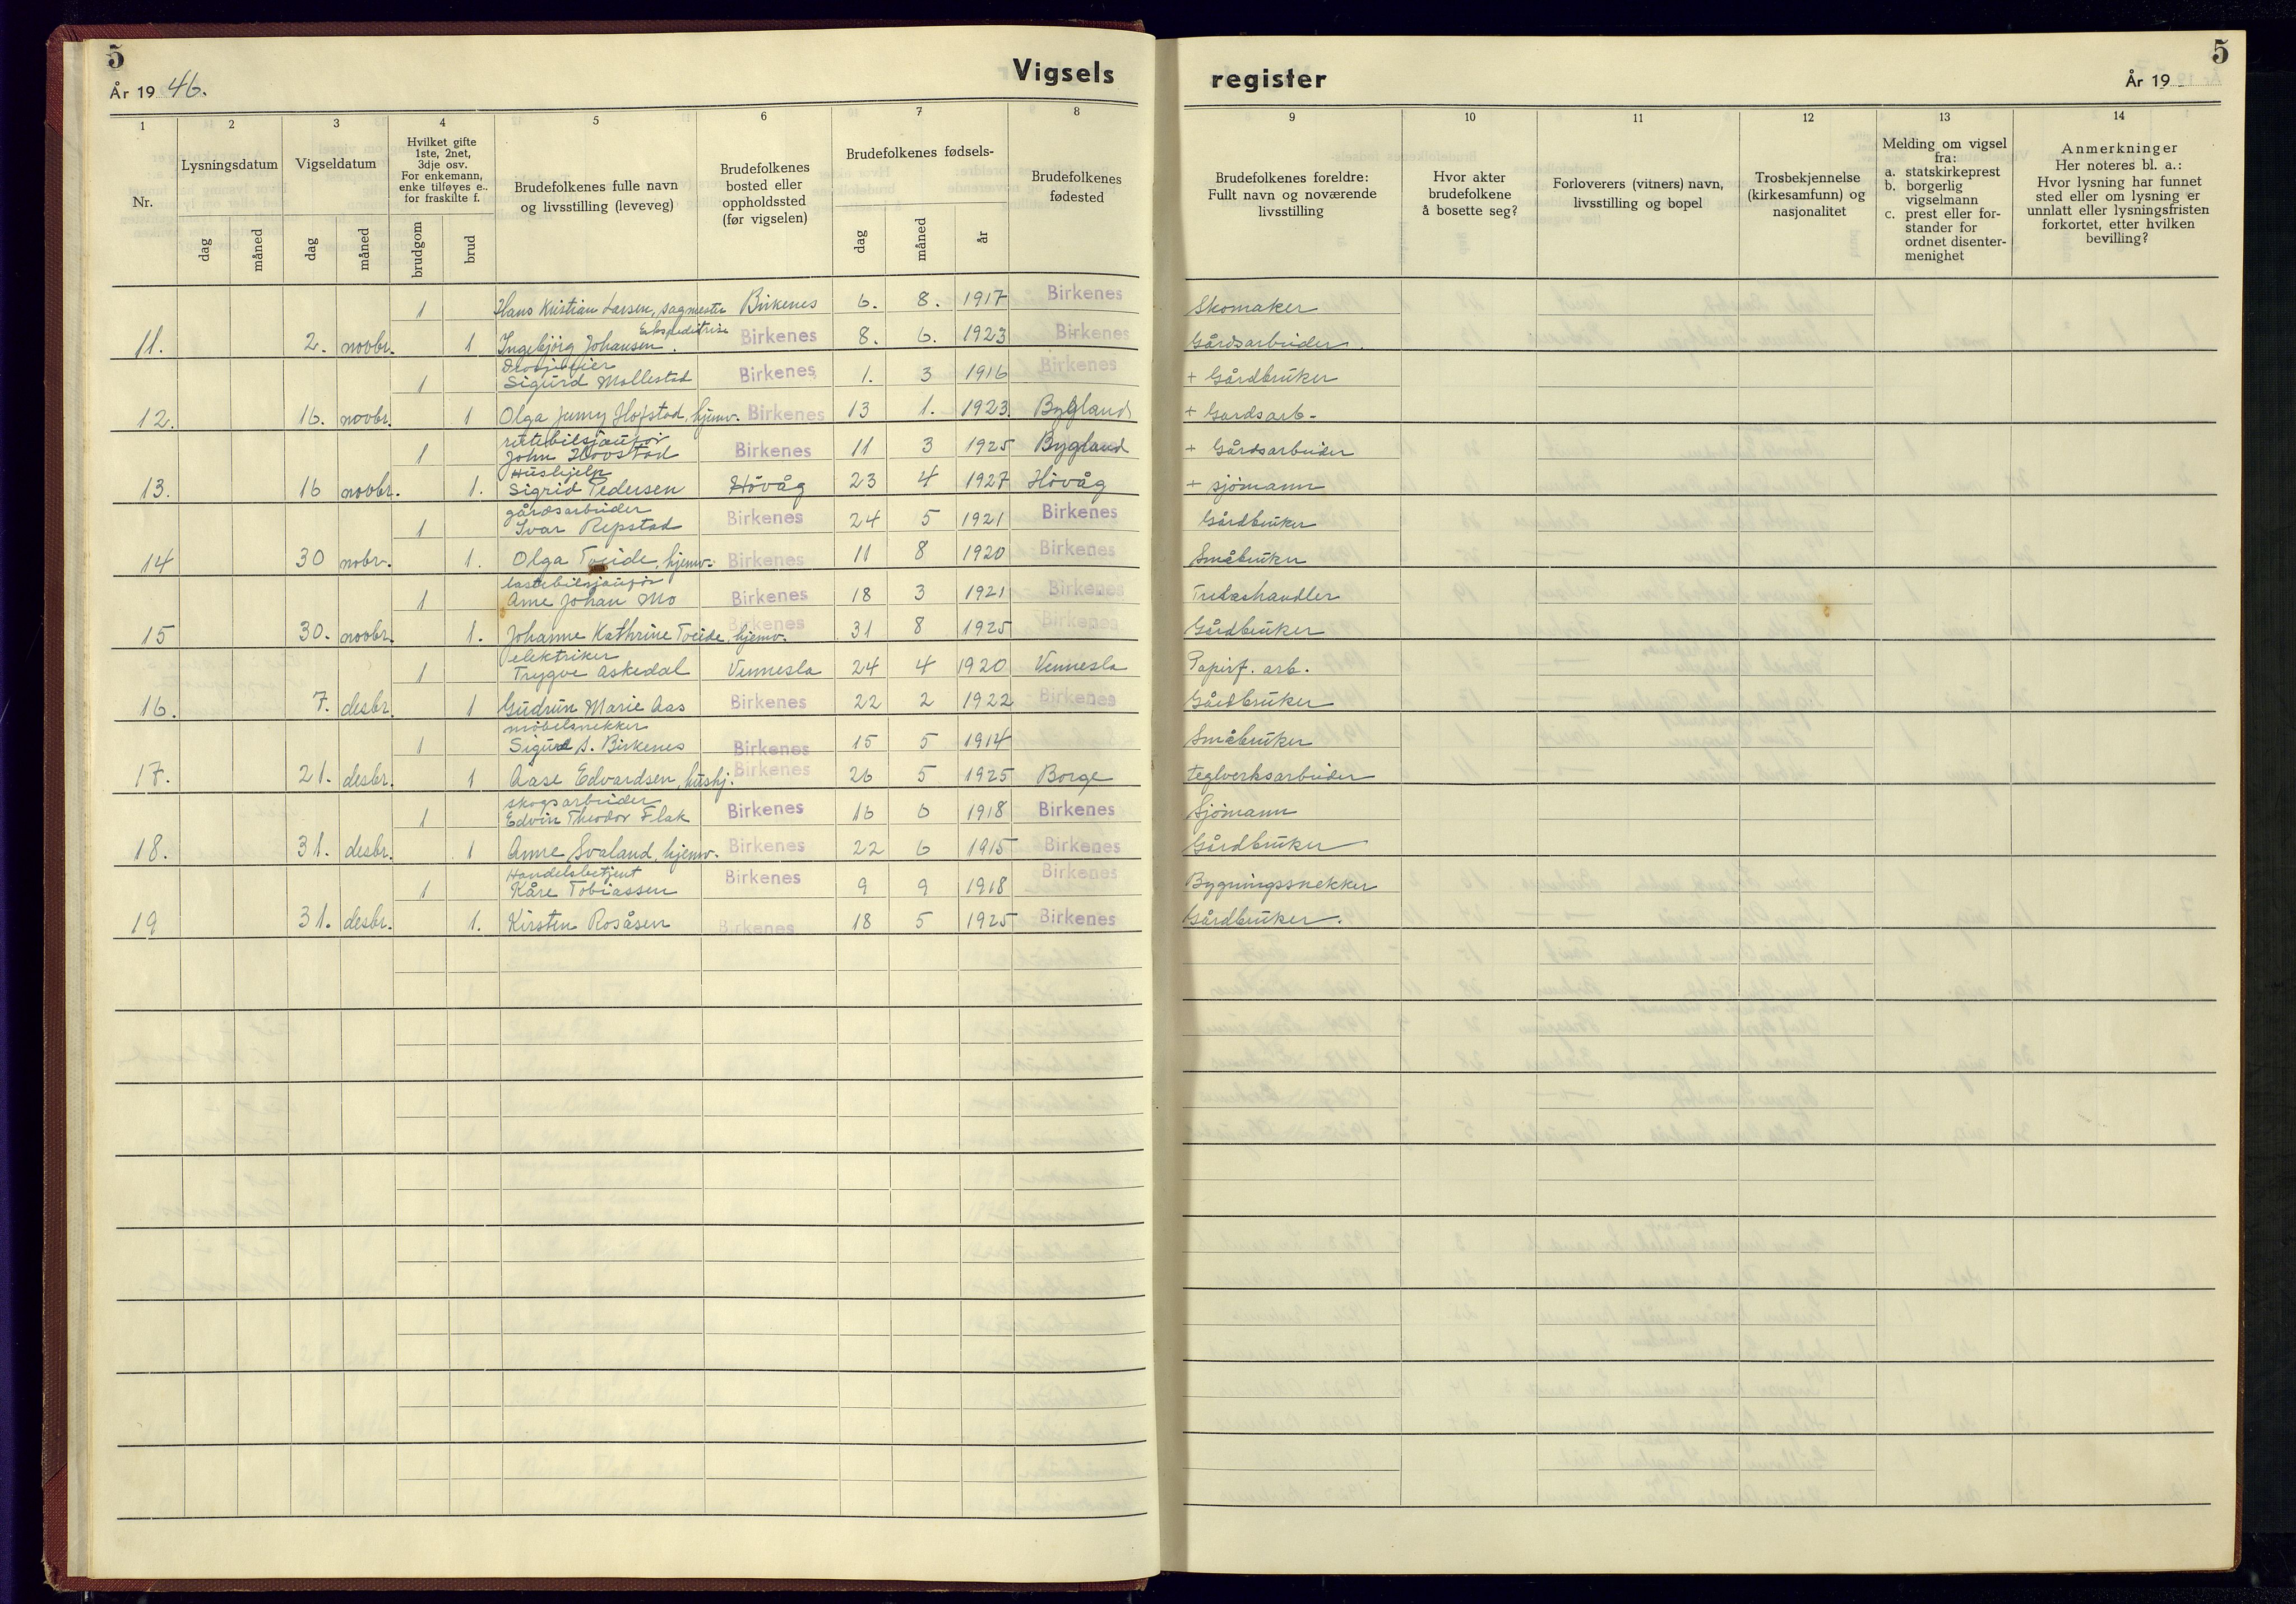 5
Vigsels
År 19 46.
1
2
3
4
5
6
7
8
Nr.
Lysningsdatum
Vigseldatum
Hvilket gifte
1ste, 2net,
3dje osv.
For enkemann,
enke tilføyes e..
for fraskilte f.
Brudefolkenes fulle navn
og livsstilling (leveveg)
Brudefolkenes
bosted eller
oppholdssted
(før vigselen)
Brudefolkenes fødsels-
Brudefolkenes
fødested
dag
måned
dag
måned
brudgom
brud
dag
måned
år
1 Hans Kristian Larsen, sagmester Birkenes 6. 8. 1917 Birkenes
Ekspeditrise
11. 2. novbr. 1 Ingebjørg Johansen. Birkenes 8. 6. 1923 Birkenes
1 Sigurd Mollestad Birkenes 1. 3 1916 Birkenes
12. 16. novbr. 1 Olga Jenny Hofstad, hjemv. Birkenes 13 1. 1923. Bygland
rutebilsjåufør
1 John Hovstad Birkenes 11 3 1925 Bygland
Hushjelp
13. 16 novbr. 1. Sigrid Pedersen Høvåg 23 4 1927 Høvåg
gårdsarbeider
1 Ivar Repstad Birkenes 24 5 1921 Birkenes
14 30 nobr. 1. Olga Tveide, hjemv. Birkenes 11 8 1920 Birkenes
lastebilsjåufør
1 Arne Johan Mo Birkenes 18 3 1921 Birkenes
15 30. novbr. 1. Johanne Kathrine Tveide, hjemv. Birkenes 31 8 1925 Birkenes
elektriker
1 Trygve Askedal Vennesla 24 4 1920 Vennesla
16. 7. desbr. 1 Gudrun Marie Aas Birkenes 22 2 1922 Birkenes
møbelsnekker
1 Sigurd S. Birkenes Birkenes 15 5 1914
17. 21. desbr. 1 Aase Edvardsen, hushj. Birkenes 26 5 1925 Borge
skogsarbeider
1 Edvin Theodor Flak Birkenes 16 6 1918 Birkenes
18. 31. desbr. 1 Anne Svaland, hjemv. Birkenes 22 6 1915 Birkenes
Handelsbetjent
1 Kåre Tobiassen Birkenes 9 9 1918 Birkenes
19 31. desbr. 1. Kirsten Rosåsen Birkenes 18 5 1925 Birkenes
5
register
År 19
9
10
11
12
13
14
Brudefolkenes foreldre:
Fullt navn og noværende
livsstilling
Hvor akter
brudefolkene
å bosette seg?
Forloverers (vitners) navn,
livsstilling og bopel
Trosbekjennelse
(kirkesamfunn) og
nasjonalitet
Melding om vigsel
fra:
a. statskirkeprest
b. borgerlig
vigselmann
c. prest eller for-
stander for
ordnet disenter-
menighet
Anmerkninger
Her noteres bl. a.:
Hvor lysning har funnet
sted eller om lysning er
unnlatt eller lysningsfristen
forkortet, etter hvilken
bevilling?
Skomaker
Gårdsarbeider.
+ Gårdbruker
+ Gardsarb-
+ Gårdsarbeider
+ sjømann
Gårdbruker
Småbruker
Trelasthandler
Gårdbruker
Papirf. arb.
Gårdbruker
Småbruker
teglverksarbeider
Sjømann
Gårdbruker
Bygningssnekker
Gårdbruker.